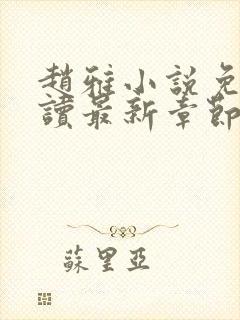 趙雅小說免
讀最新章節
蘇里亞